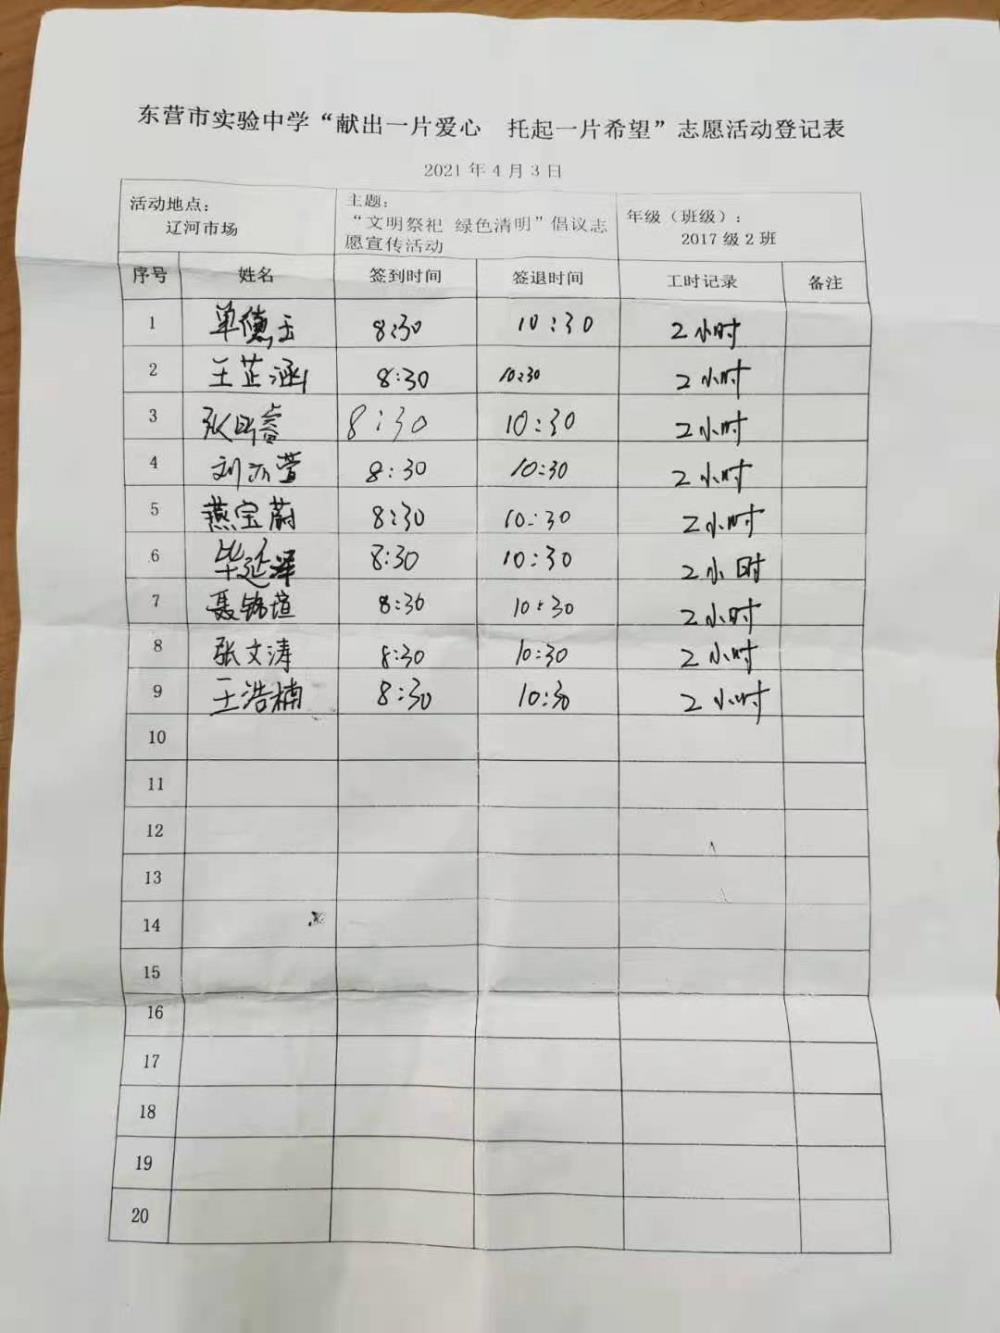 东营市实验中学“献出一片爱心 托起一片希望”志愿活动登记表
2021 年 4 月 3 日
活动地点：
辽河市场
主题：
“文明祭祀 绿色清明”倡议志
愿宣传活动
年级（班级）：
2017 级 2 班
序号 姓名 签到时间 签退时间 工时记录 备注
1 单 8:30 10:30 2小时
2 王芷涵 8:30 10:30 2小时
3 张 睿 8:30 10:30 2小时
4 刘 萱 8:30 10:30 2小时
5 燕宝蔚 8:30 10:30 2小时
6 毕延泽 8:30 10:30 2小时
7 聂锦煊 8:30 10:30 2小时
8 张文涛 8:30 10:30 2小时
9 王浩楠 8:30 10:30 2小时
10
11
12
13
14
15
16
17
18
19
20